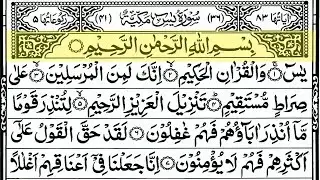 اٰیَاتُهَا ٨٣ (٣٦) سُوْرَةُ یٰسٓ مَكِّیَّةٌ (٤١) رُكُوْعَاتُهَا ٥
بِسْمِ اللّٰهِ الرَّحْمٰنِ الرَّحِیْمِ
یٰسٓ ۚ وَالْقُرْاٰنِ الْحَكِیْمِ ۙ اِنَّكَ لَمِنَ الْمُرْسَلِیْنَ ۙ عَلٰی
صِرَاطٍ مُّسْتَقِیْمٍ ؕ تَنْزِیْلَ الْعَزِیْزِ الرَّحِیْمِ ۙ لِتُنْذِرَ قَوْمًا
مَّاۤ اُنْذِرَ اٰبَآؤُهُمْ فَهُمْ غٰفِلُوْنَ لَقَدْ حَقَّ الْقَوْلُ عَلٰۤی
اَكْثَرِهِمْ فَهُمْ لَا یُؤْمِنُوْنَ اِنَّا جَعَلْنَا فِیْۤ اَعْنَاقِهِمْ اَغْلٰلًا